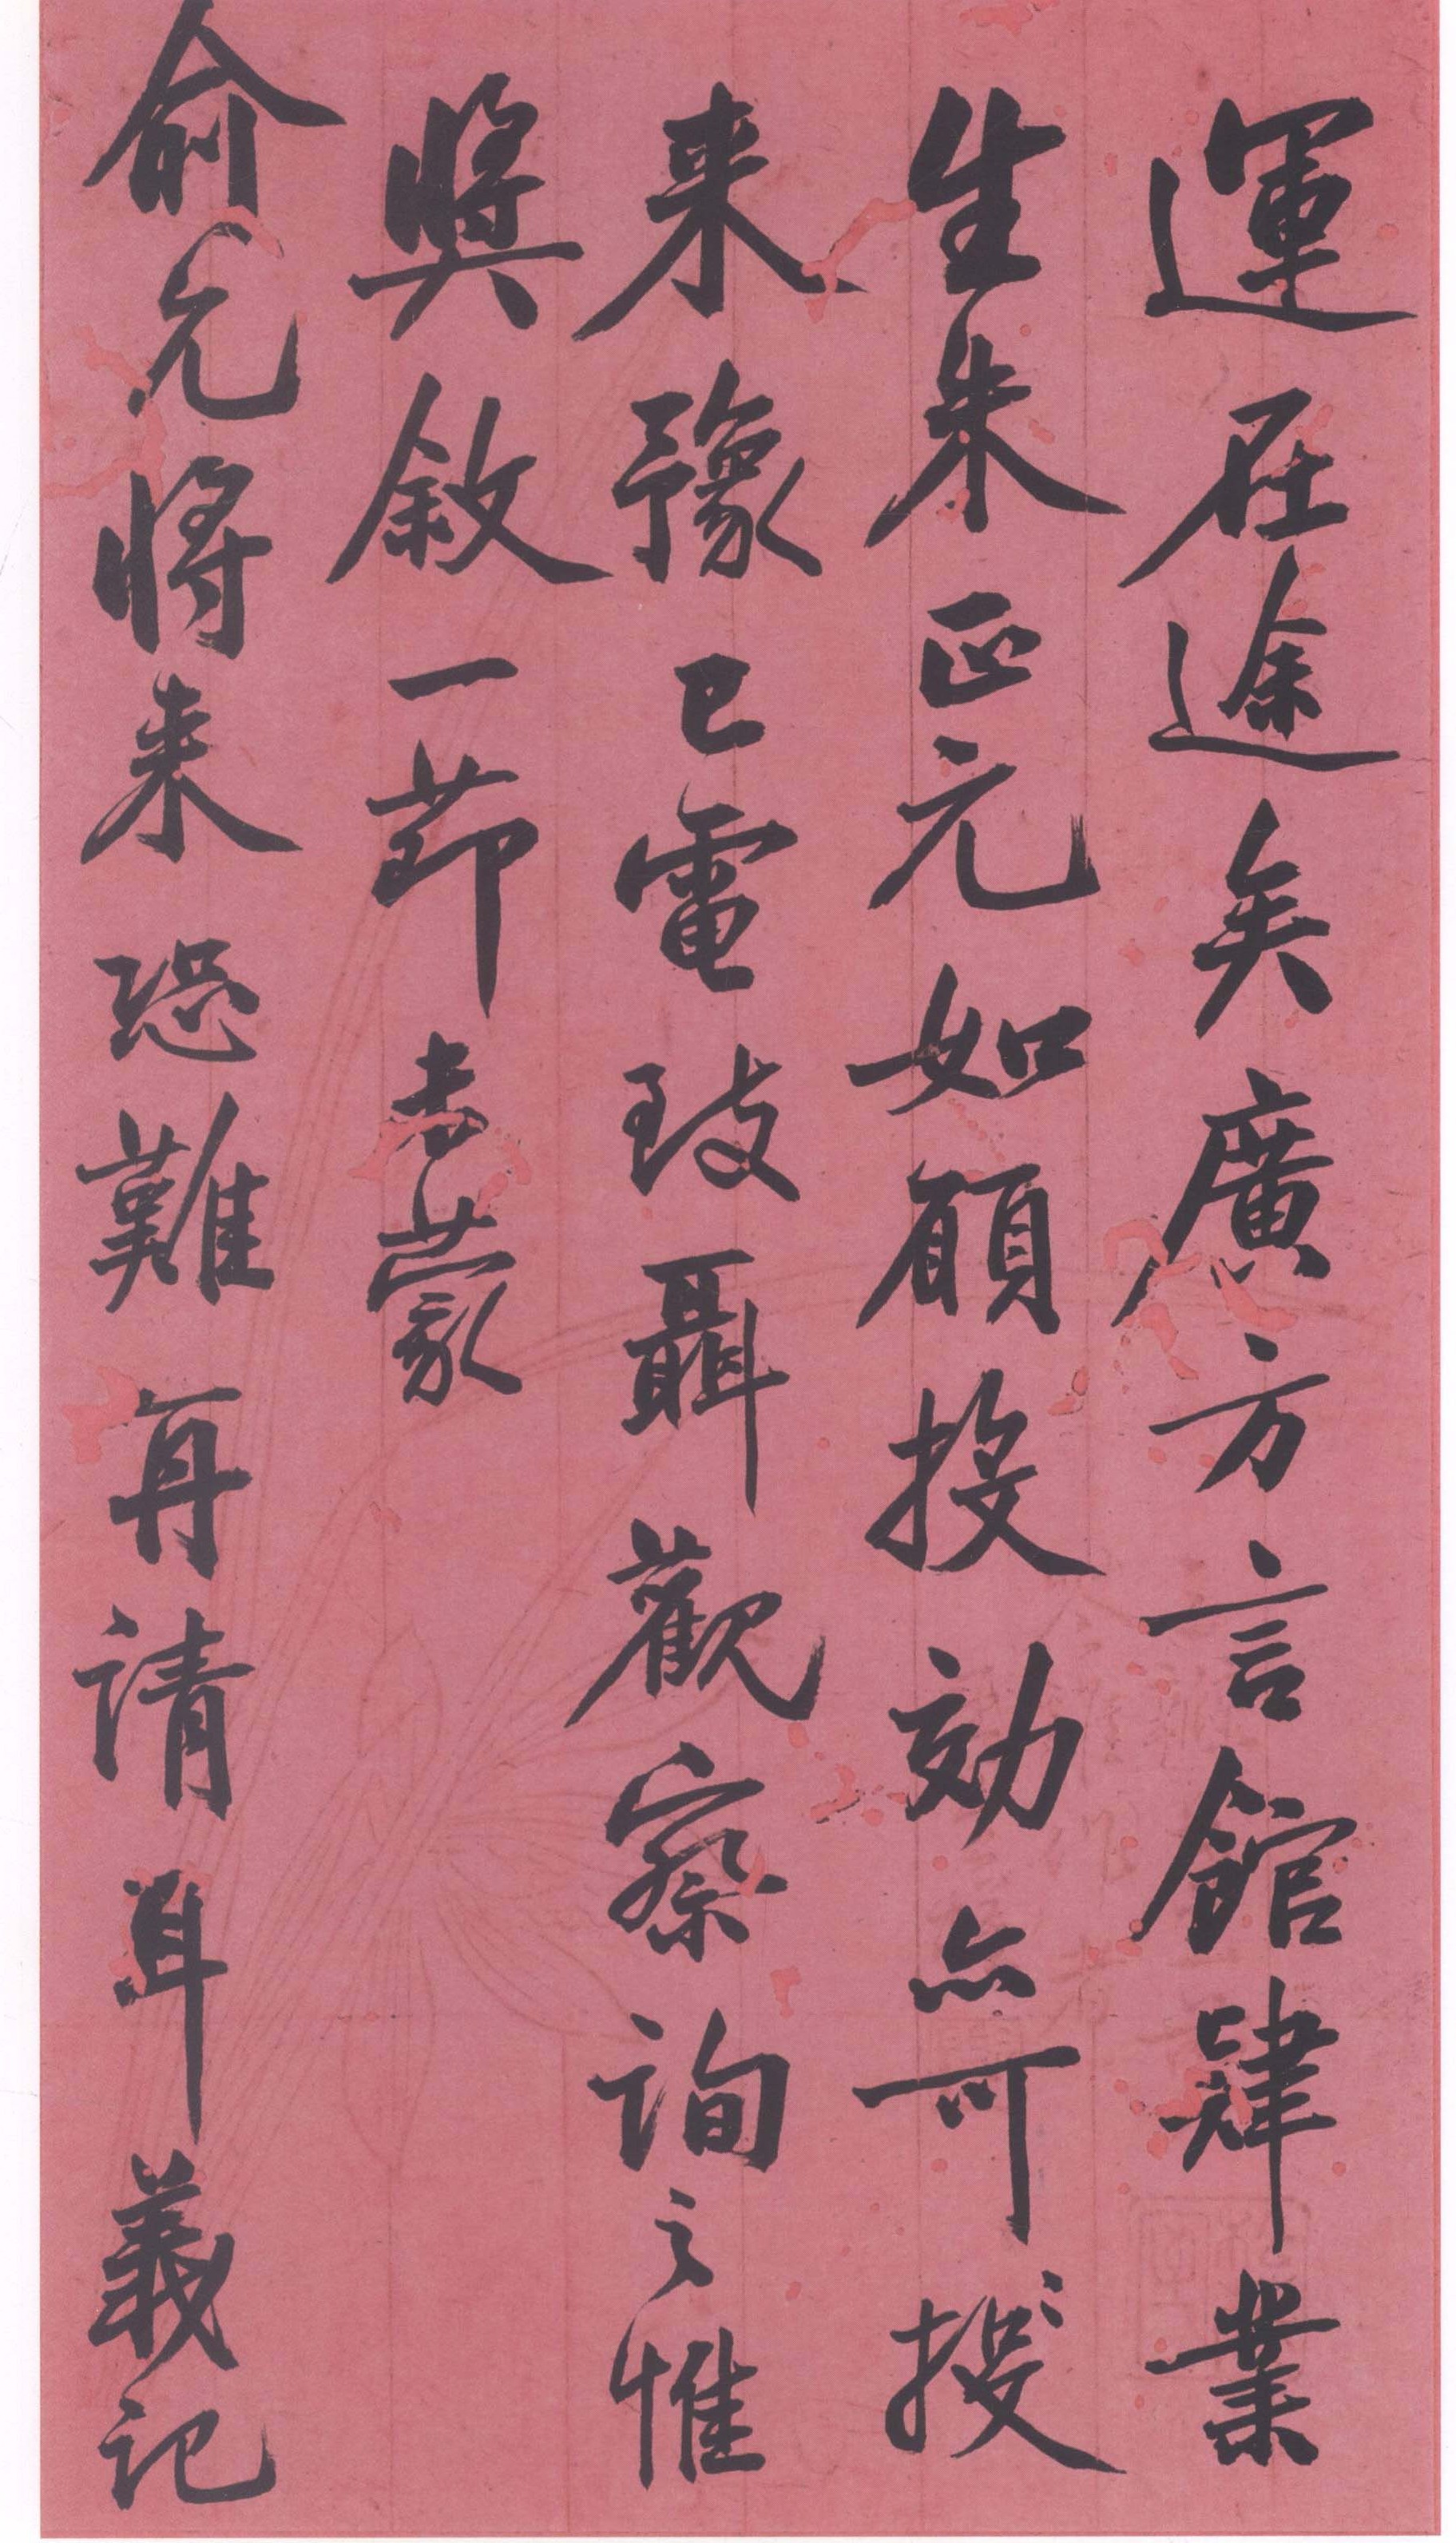 運在途矣廣方言館肄業
生朱正元如願投效亦可授
來豫已電致聶觀察詢之惟
獎敘一節未蒙
俞允將來恐難再請耳義記